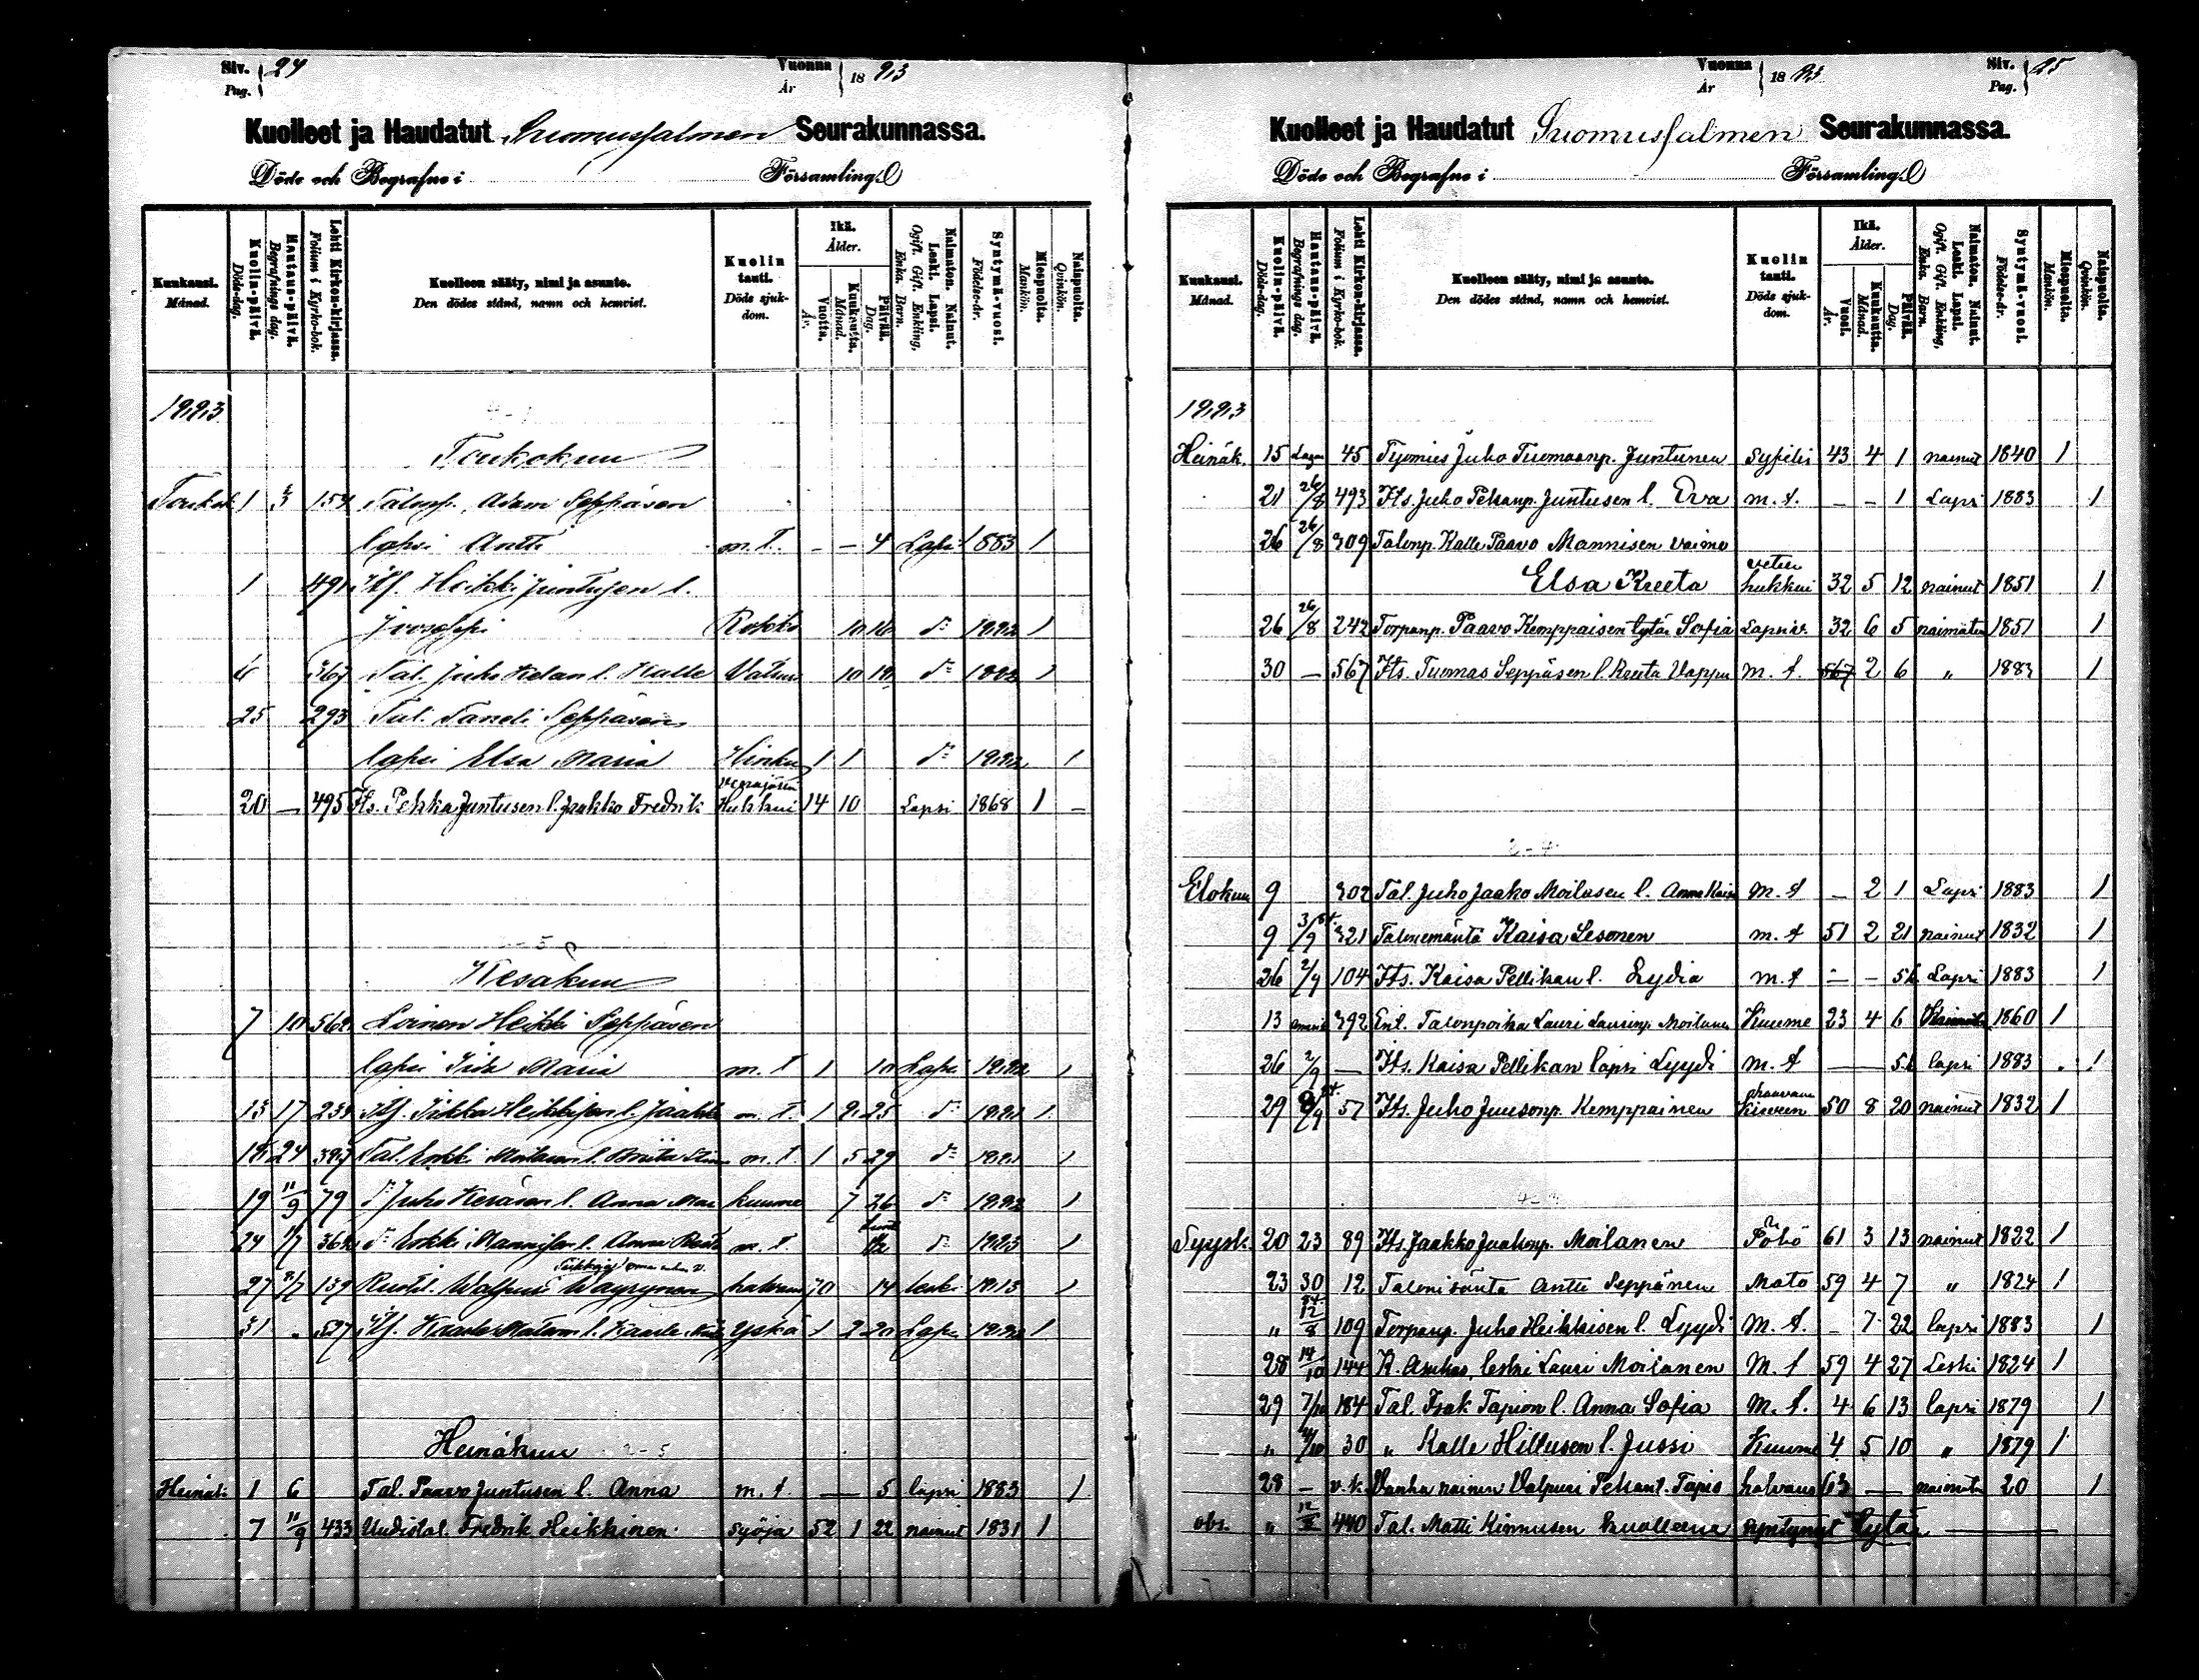 Siv. Pag. 24
Vuonna År 1883
Kuolleet ja Haudatut Suomussalmen Seurakunnassa.
Döde och Begrafne i Församling
Kuukausi. Månad.
Kuolin-päivä. Döds-dag.
Hautaus-päivä. Begrafnings dag.
Lehti Kirkon-kirjassa. Folium i Kyrko-bok.
Kuolleen sääty, nimi ja asunto. Den dödes stånd, namn och hemvist.
Kuolin tauti. Döds sjukdom.
Ikä. Ålder.
Vuotta. År.
Kuukautta. Månad.
Päivää. Dag.
Naimaton. Nainut. Leski. Lapsi. Ogift. Gift. Enkling. Enka. Barn.
Syntymä-vuosi. Födelse-år.
Miespuolta. Mankön.
Naispuolta. Qvinkön.
1883
Toukokuu
Toukok. 1 154 Talonp. Adam Seppäsen
lapsi Antti m.t. - - 4 Lapsi 1883 1
1 491 Its. Heikki Juntusen l.
Jooseppi Rokko 10 16 d:o 1882 1
6 367 Tal. Juho Kelan l. Kalle 10 d:o 1882 1
25 293 Tal. Taneli Seppäsen
lapsi Elsa Maria Hinku 1 1 d:o 1882 1
20 — 495 Its. Pekka Juntusen l. Jaakko Fredrik Hukkui 14 10 Lapsi 1868 1 -
Kesäkuu
7 10 562 Loinen Heikki Seppäsen
lapsi Maria m.t. 1 10 Lapsi 1882 1
13 17 239 Its. Heikkisen l. Jaakko m.t. 1 8 25 d:o 1881 1
18 24 Tal. Erkki Moilasen l. Briita m.t. 1 5 29 d:o 1881 1
19 11/9 79 d:o Juho Keräsen l. Anna Mar. kuume 7 26 d:o 1882 1
24 Erkki Mannisen l. Anna m.t. d:o 1883 1
27 139 Walpuri Wäyrynen halvaus 70 14 leski 1813 1
31 „ 527 Its. Kaarle l. Kaarle yskä 1 2 20 Lapsi 1882 1
Heinäkuu
Heinäk. 1 6 Tal. Paavo Juntusen l. Anna m.t. — 5 lapsi 1883 1
7 11/9 433 Uudistal. Fredrik Heikkinen syöjä 52 1 22 nainut 1831 1
Vuonna År 1883
Siv. Pag. 25
Kuolleet ja Haudatut Suomussalmen Seurakunnassa.
Döde och Begrafne i Församling
Kuukausi. Månad.
Kuolin-päivä. Döds-dag.
Hautaus-päivä. Begrafnings dag.
Lehti Kirkon-kirjassa. Folium i Kyrko-bok.
Kuolleen sääty, nimi ja asunto. Den dödes stånd, namn och hemvist.
Kuolin tauti. Döds sjukdom.
Ikä. Ålder.
Vuosi. År.
Kuukautta. Månad.
Päivää. Dag.
Naimaton. Nainut. Leski. Lapsi. Ogift. Gift. Enkling. Enka. Barn.
Syntymä-vuosi. Födelse-år.
Miespuolta. Mankön.
Naispuolta. Qvinkön.
1883
Heinäk. 15 45 Työmies Juho Tuomaanp. Juntunen Syfilis 43 4 1 nainut 1840 1
21 26/8 493 Its. Juho Pekanp. Juntusen l. Eva m.t. - - 1 Lapsi 1883 1
26 26/8 309 Talonp. Kalle Paavo Mannisen vaimo
Elsa Kreeta veteen hukkui 32 5 12 nainut 1851 1
26 26/8 242 Torpanp. Paavo Kemppaisen tytär Sofia Lapsiv. 32 6 5 naimaton 1851 1
30 — 567 Its. Tuomas Seppäsen l. Reeta Vappu m.t. 567 2 6 „ 1883 1
Elokuu 9 302 Tal. Juho Jaako Moilasen l. Anna Kaisa m.t - 2 1 Lapsi 1883 1
9 3/9 321 Talonemäntä Kaisa Lesonen m.t 51 2 21 nainut 1832 1
26 2/9 104 Its. Kaisa Pellikan l. Lydia m.t - - Lapsi 1883 1
13 392 Ent. Talonpoika Lauri Laurinp. Moilanen Kuume 23 4 6 1860 1
26 2/9 — Its. Kaisa Pellikan lapsi Lyydi m.t — lapsi 1883 1
29 57 Its. Juho Juusonp. Kemppainen 50 8 20 nainut 1832 1
Syysk. 20 23 89 Its. Jaakko Jaakonp. Moilanen Pöhö 61 3 13 nainut 1822 1
23 30 12 Talonisäntä Antti Seppänen Mato 59 4 7 „ 1824 1
„ 12/8 109 Torpanp. Juho Heikkisen l. Lyydi m.t. - 7 22 lapsi 1883 1
28 14/10 144 leski Lauri Moilanen m.t 59 4 27 Leski 1824 1
29 7/10 184 Tal. Isak Tapion l. Anna Sofia m.t. 4 6 13 lapsi 1879 1
„ 30 „ Kalle Hiltusen l. Jussi Kuume 4 5 10 „ 1879 1
28 — v.k. Vanha nainen Valpuri Pekant. Tapio halvaus 63 — naimaton 20 1
obs. „ 440 Tal. Matti Kinnusen kuolleena syntynyt tytär —